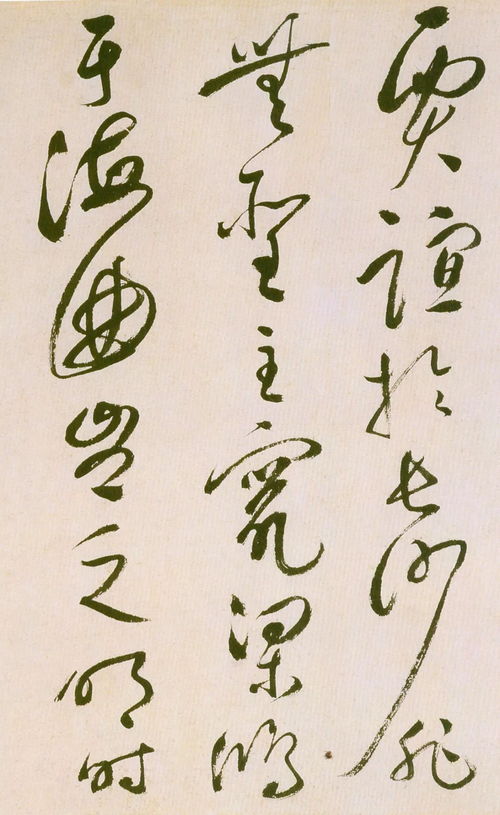 賈誼於長沙非
無聖主竄梁鴻
于海曲豈乏明時